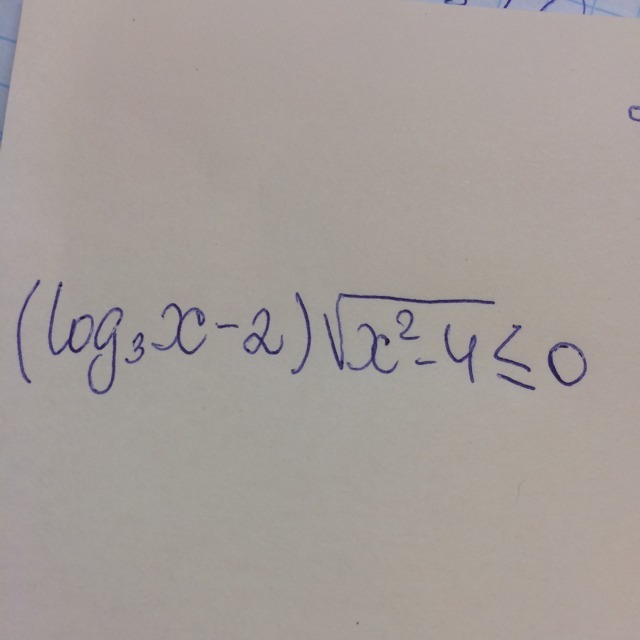 (log₃x-2)√x²-4≤0